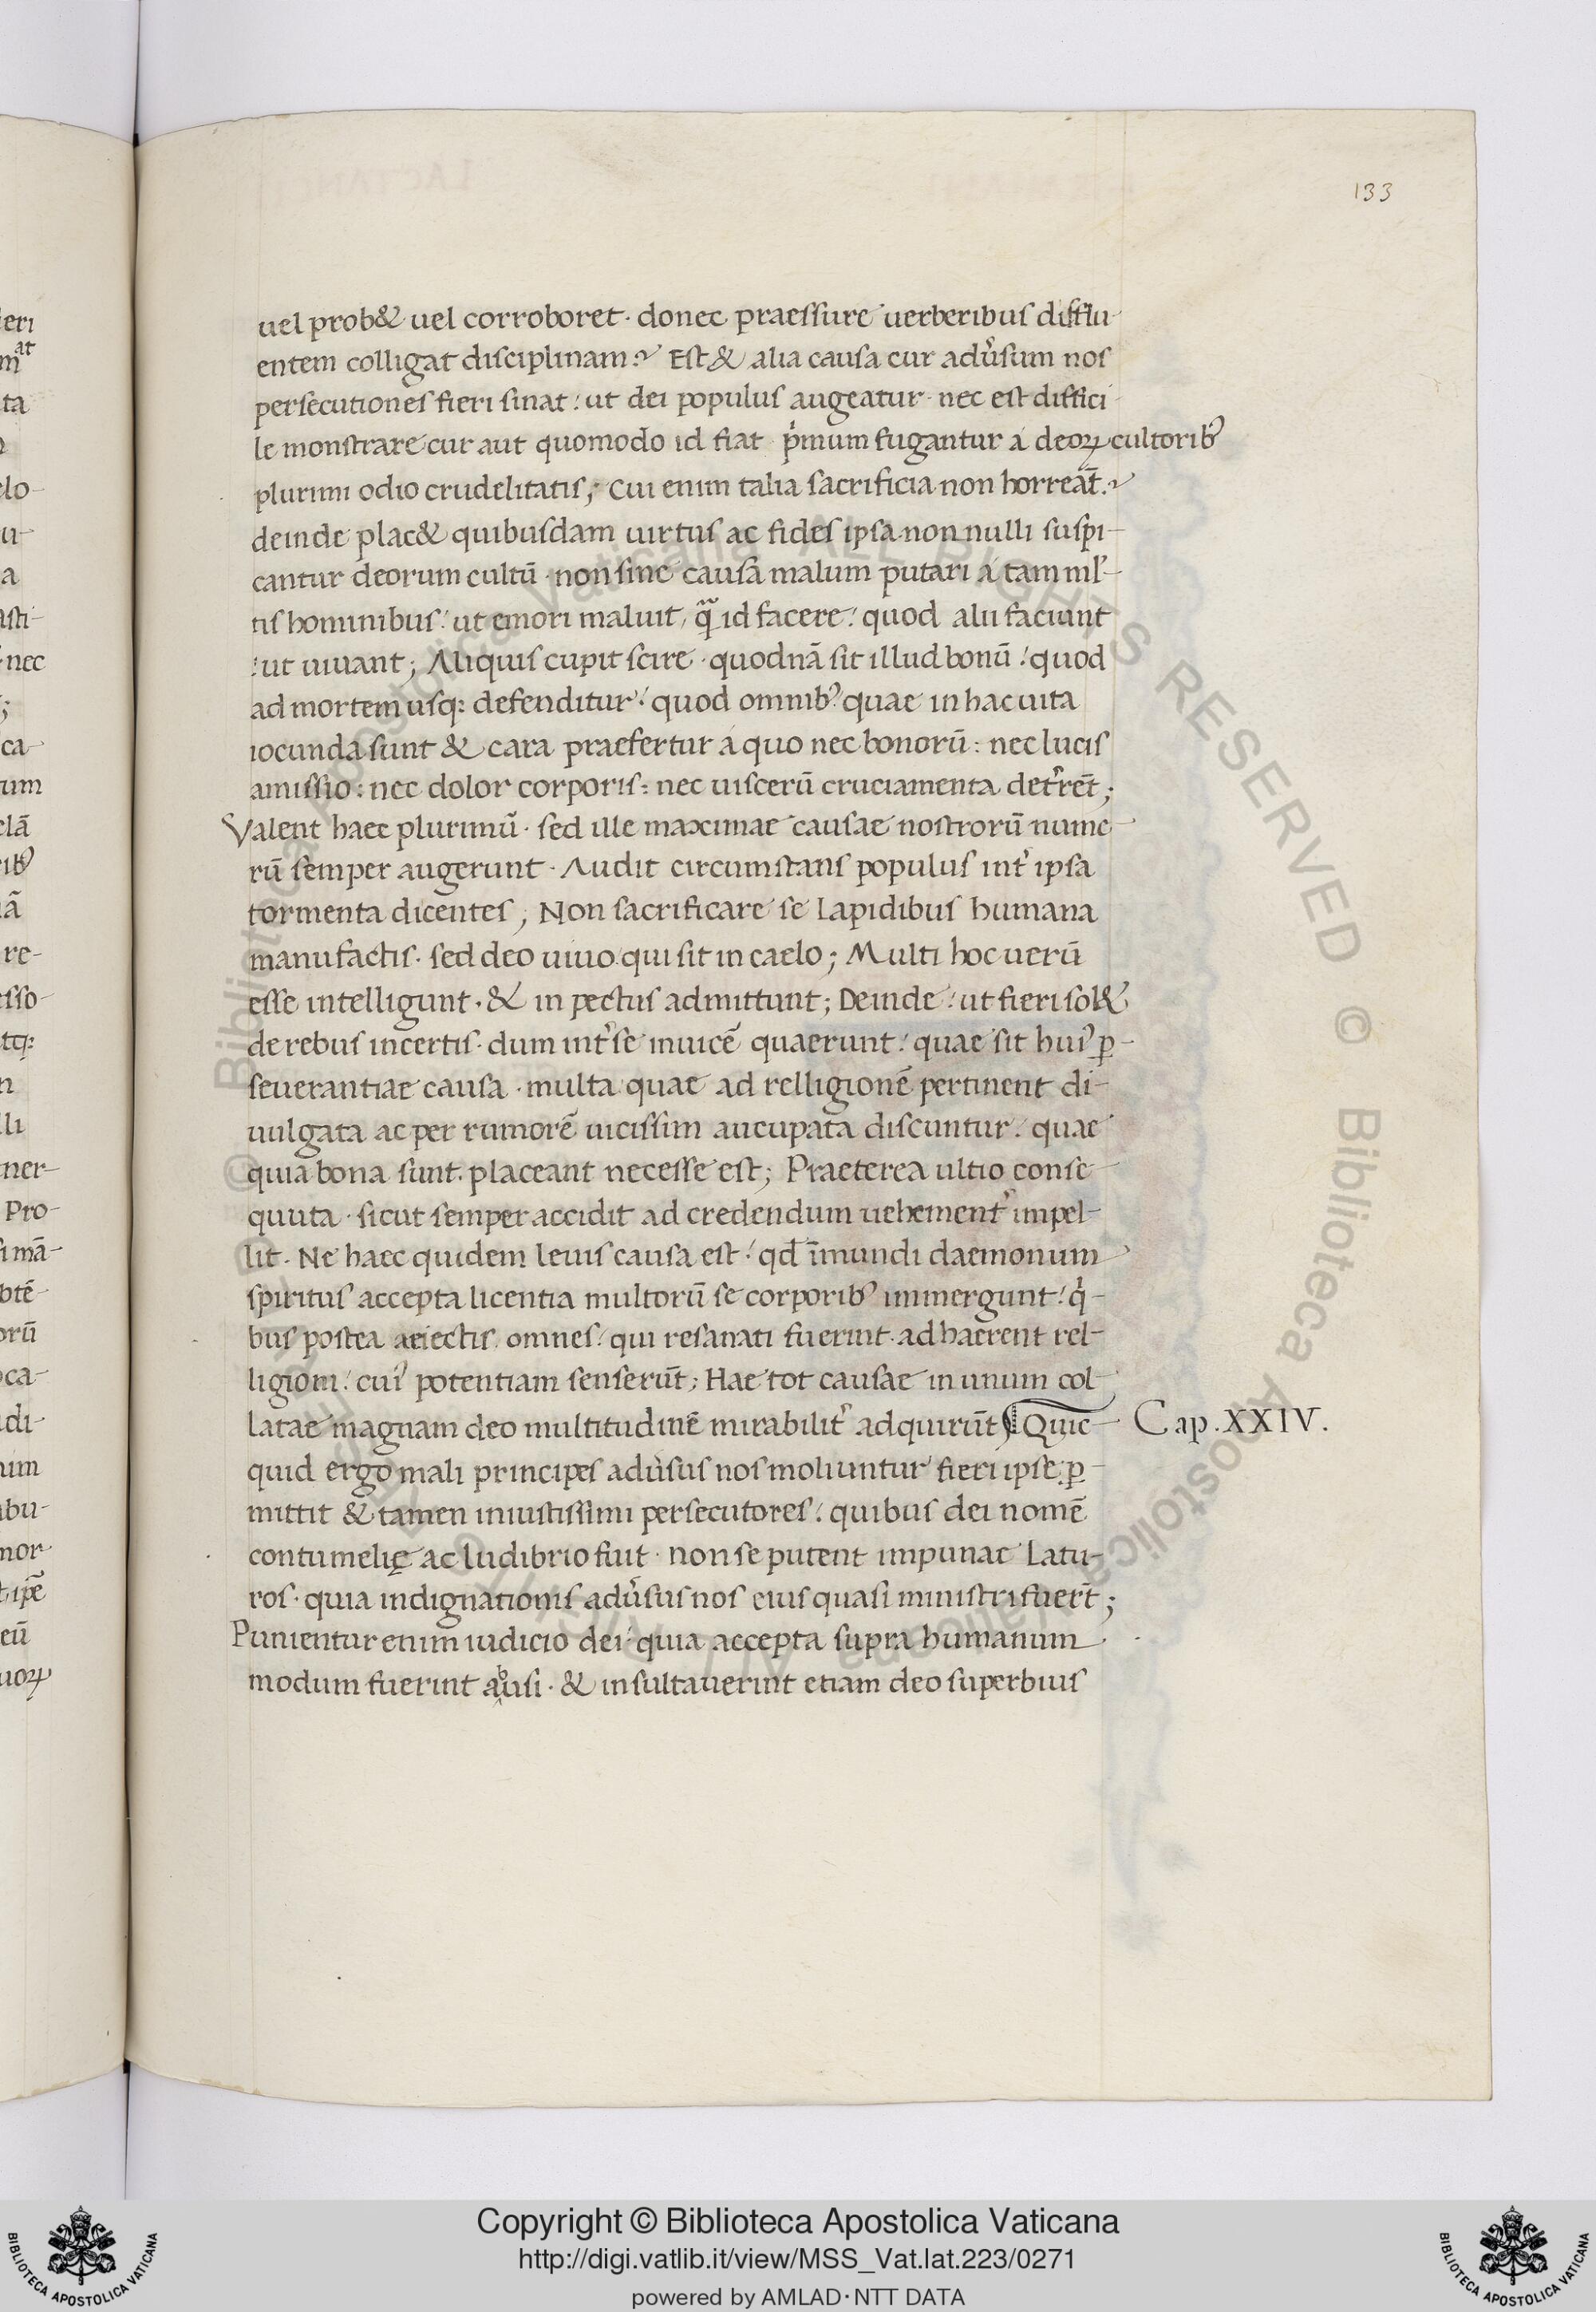 133
uel prob& uel corroboret· donec praessure uerberibus difflu-
entem colligat disciplinam:~ Est & alia causa cur adu̓sum nos
persecutiones fieri sinat: ut dei populus augeatur· nec est diffici-
le monstrare cur aut quomodo id fiat p̓mum fugantur a deoꝝ cultoribꝰ
plurimi odio crudelitatis; Cui enim talia sacrificia non horreāt.~
deinde plac& quibusdam uirtus ac fides ipsa. non nulli suspi-
cantur deorum cultū · non sine causa malum putari a tam ml̓-
tis hominibus: ut emori maluit, qᷓ id facere: quod alii faciunt
:ut uiuant; Aliquis cupit scire · quodnā sit illud bonū: quod
ad mortem usq: defenditur: quod omnibꝰ quae in hac uita
iocunda sunt & cara praefertur a quo nec bonorū: nec lucis
amissio: nec dolor corporis: nec uiscerū cruciamenta det̓rēt;
Valent haec plurimū· sed ille maximae causae nostrorū nume-
rū semper augerunt · Audit circumstans populus int̓ ipsa
tormenta dicentes; Non sacrificare se lapidibus humana
manu factis· sed deo uiuo qui sit in caelo; Multi hoc uerū
esse intelligunt· & in pectus admittunt; Deinde: ut fieri sol&
de rebus incertis· dum int̓ se inuicē quaerunt: quae sit huiꝰ ꝑ-
seuerantiae causa · multa quae ad relligionē pertinent di-
uulgata ac per rumorē uicissim aucupata discuntur: quae
quia bona sunt. placeant necesse est; Praeterea ultio conse-
quuta · sicut semper accidit ad credendum uehement̓ impel-
lit· Ne haec quidem leuis causa est: qđ īmundi daemonum
spiritus accepta licentia multorū se corporibꝰ immergunt: q̓-
bus postea aeiectis omnes: qui resanati fuerint· adhaerent rel-
ligioni: cuiꝰ potentiam senserūt; Hae tot causae in unum col-
latae magnam deo multitudinē mirabilit̓ adquirūt Quic-
Cap. XXIV.
quid ergo mali principes adu̓sus nos moliuntur fieri ipse ꝑ-
mittit & tamen iniustissimi persecutores: quibus dei nomē
contumelię ac ludibrio fuit · non se putent impunae latu-
ros· quia indignationis adu̓sus nos eius quasi ministri fuer̄t;
Punientur enim iudicio dei· quia accepta supra humanum
modum fuerint abusi· & insultauerint etiam deo superbius
eri
at
ta
lo-
u-
a
sti-
nec
;
ca-
um
clā
re-
sso-
tq:
lli
ner-
Pro-
btē-
orū
ca-
di-
um
bu-
mor-
ipē
eū
uoꝝ
© Biblioteca Apostolica Vaticana ALL RIGHTS RESERVED © Biblioteca Apostolica Vaticana ALL RIGHTS RESERVED
Copyright © Biblioteca Apostolica Vaticana
http://digi.vatlib.it/view/MSS_Vat.lat.223/0271
powered by AMLAD·NTT DATA
BIBLIOTECA APOSTOLICA VATICANA
BIBLIOTECA APOSTOLICA VATICANA